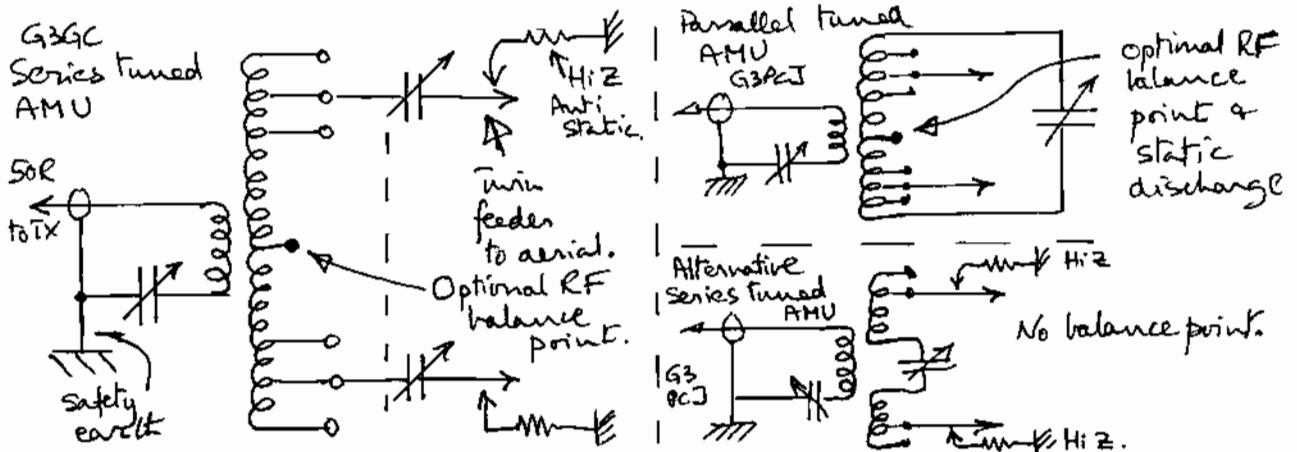 G3GC
Series tuned
AMU
50R
to TX
Safety
earth
HiZ
Anti
static.
Twin
feeder
to aerial.
Optional RF
balance
point.
Parallel tuned
AMU
G3PCJ
Optional RF
balance
point &
static
discharge
Alternative
Series tuned
AMU
G3
PCJ
HiZ
No balance point.
HiZ.